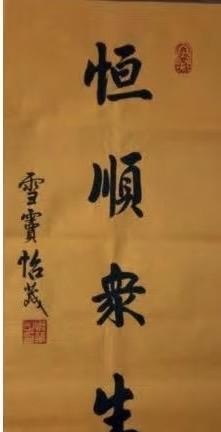 恒順衆生
雪竇怡藏